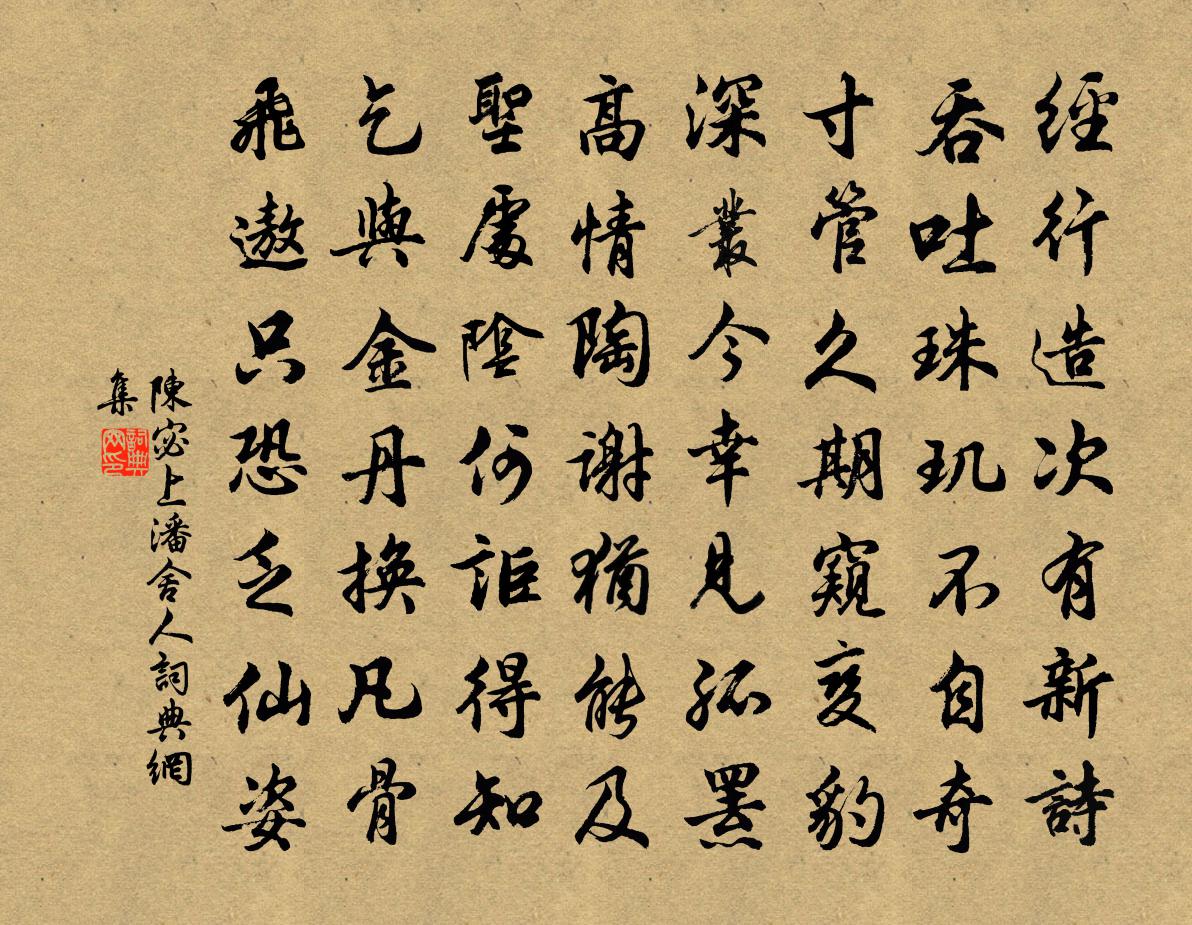 經行造次有新詩
吞吐珠玑不自奇
寸管久期窺变豹
深叢今幸見孤罴
高情陶謝猶能及
聖處陰何詎得知
乞與金丹換凡骨
飛遨只恐乏仙姿
陳宓上潘舍人詞典網
集
詞典
网印